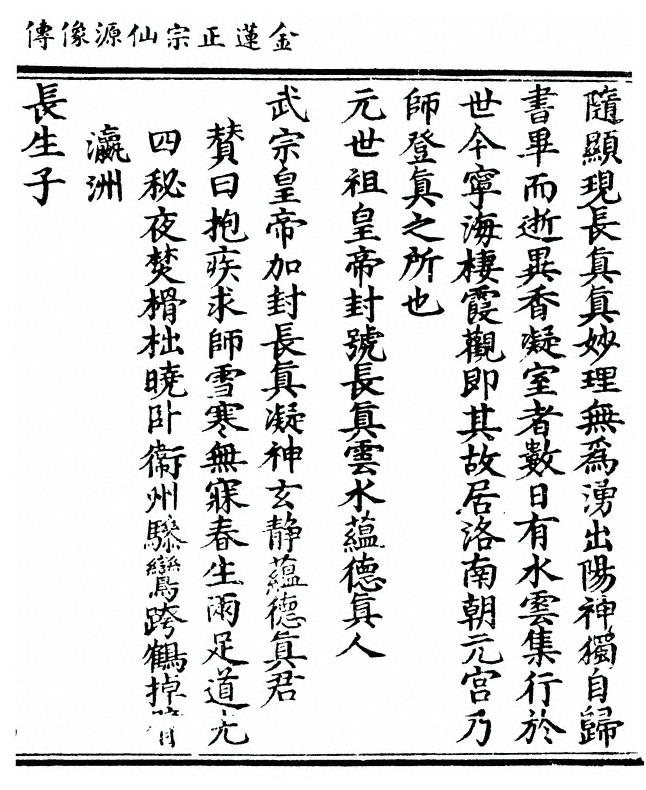 金蓮正宗仙源像傳
隨顯現長眞眞妙理無爲湧出陽神獨自歸
書畢而逝異香凝室者數日有水雲集行於
世今寧海棲霞觀即其故居洛南朝元宮乃
師登眞之所也
元世祖皇帝封號長眞雲水蘊德眞人
武宗皇帝加封長眞凝神玄静蘊德眞君
賛曰抱疾求師雪寒無寐春生兩足道尤
四秘夜焚榾柮曉卧衞州驂鸞跨鶴掉
瀛洲
長生子